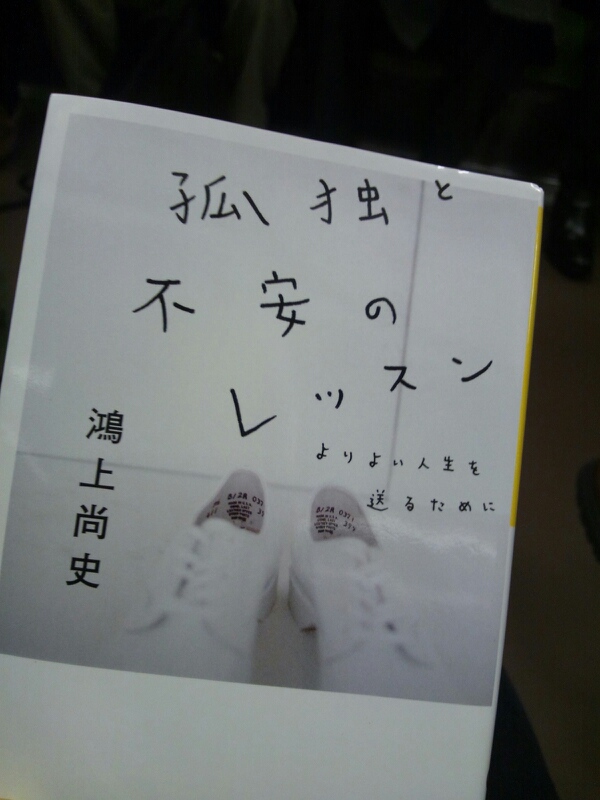 孤独と
不安の
レッスン
よりよい人生を
送るために
鴻上尚史